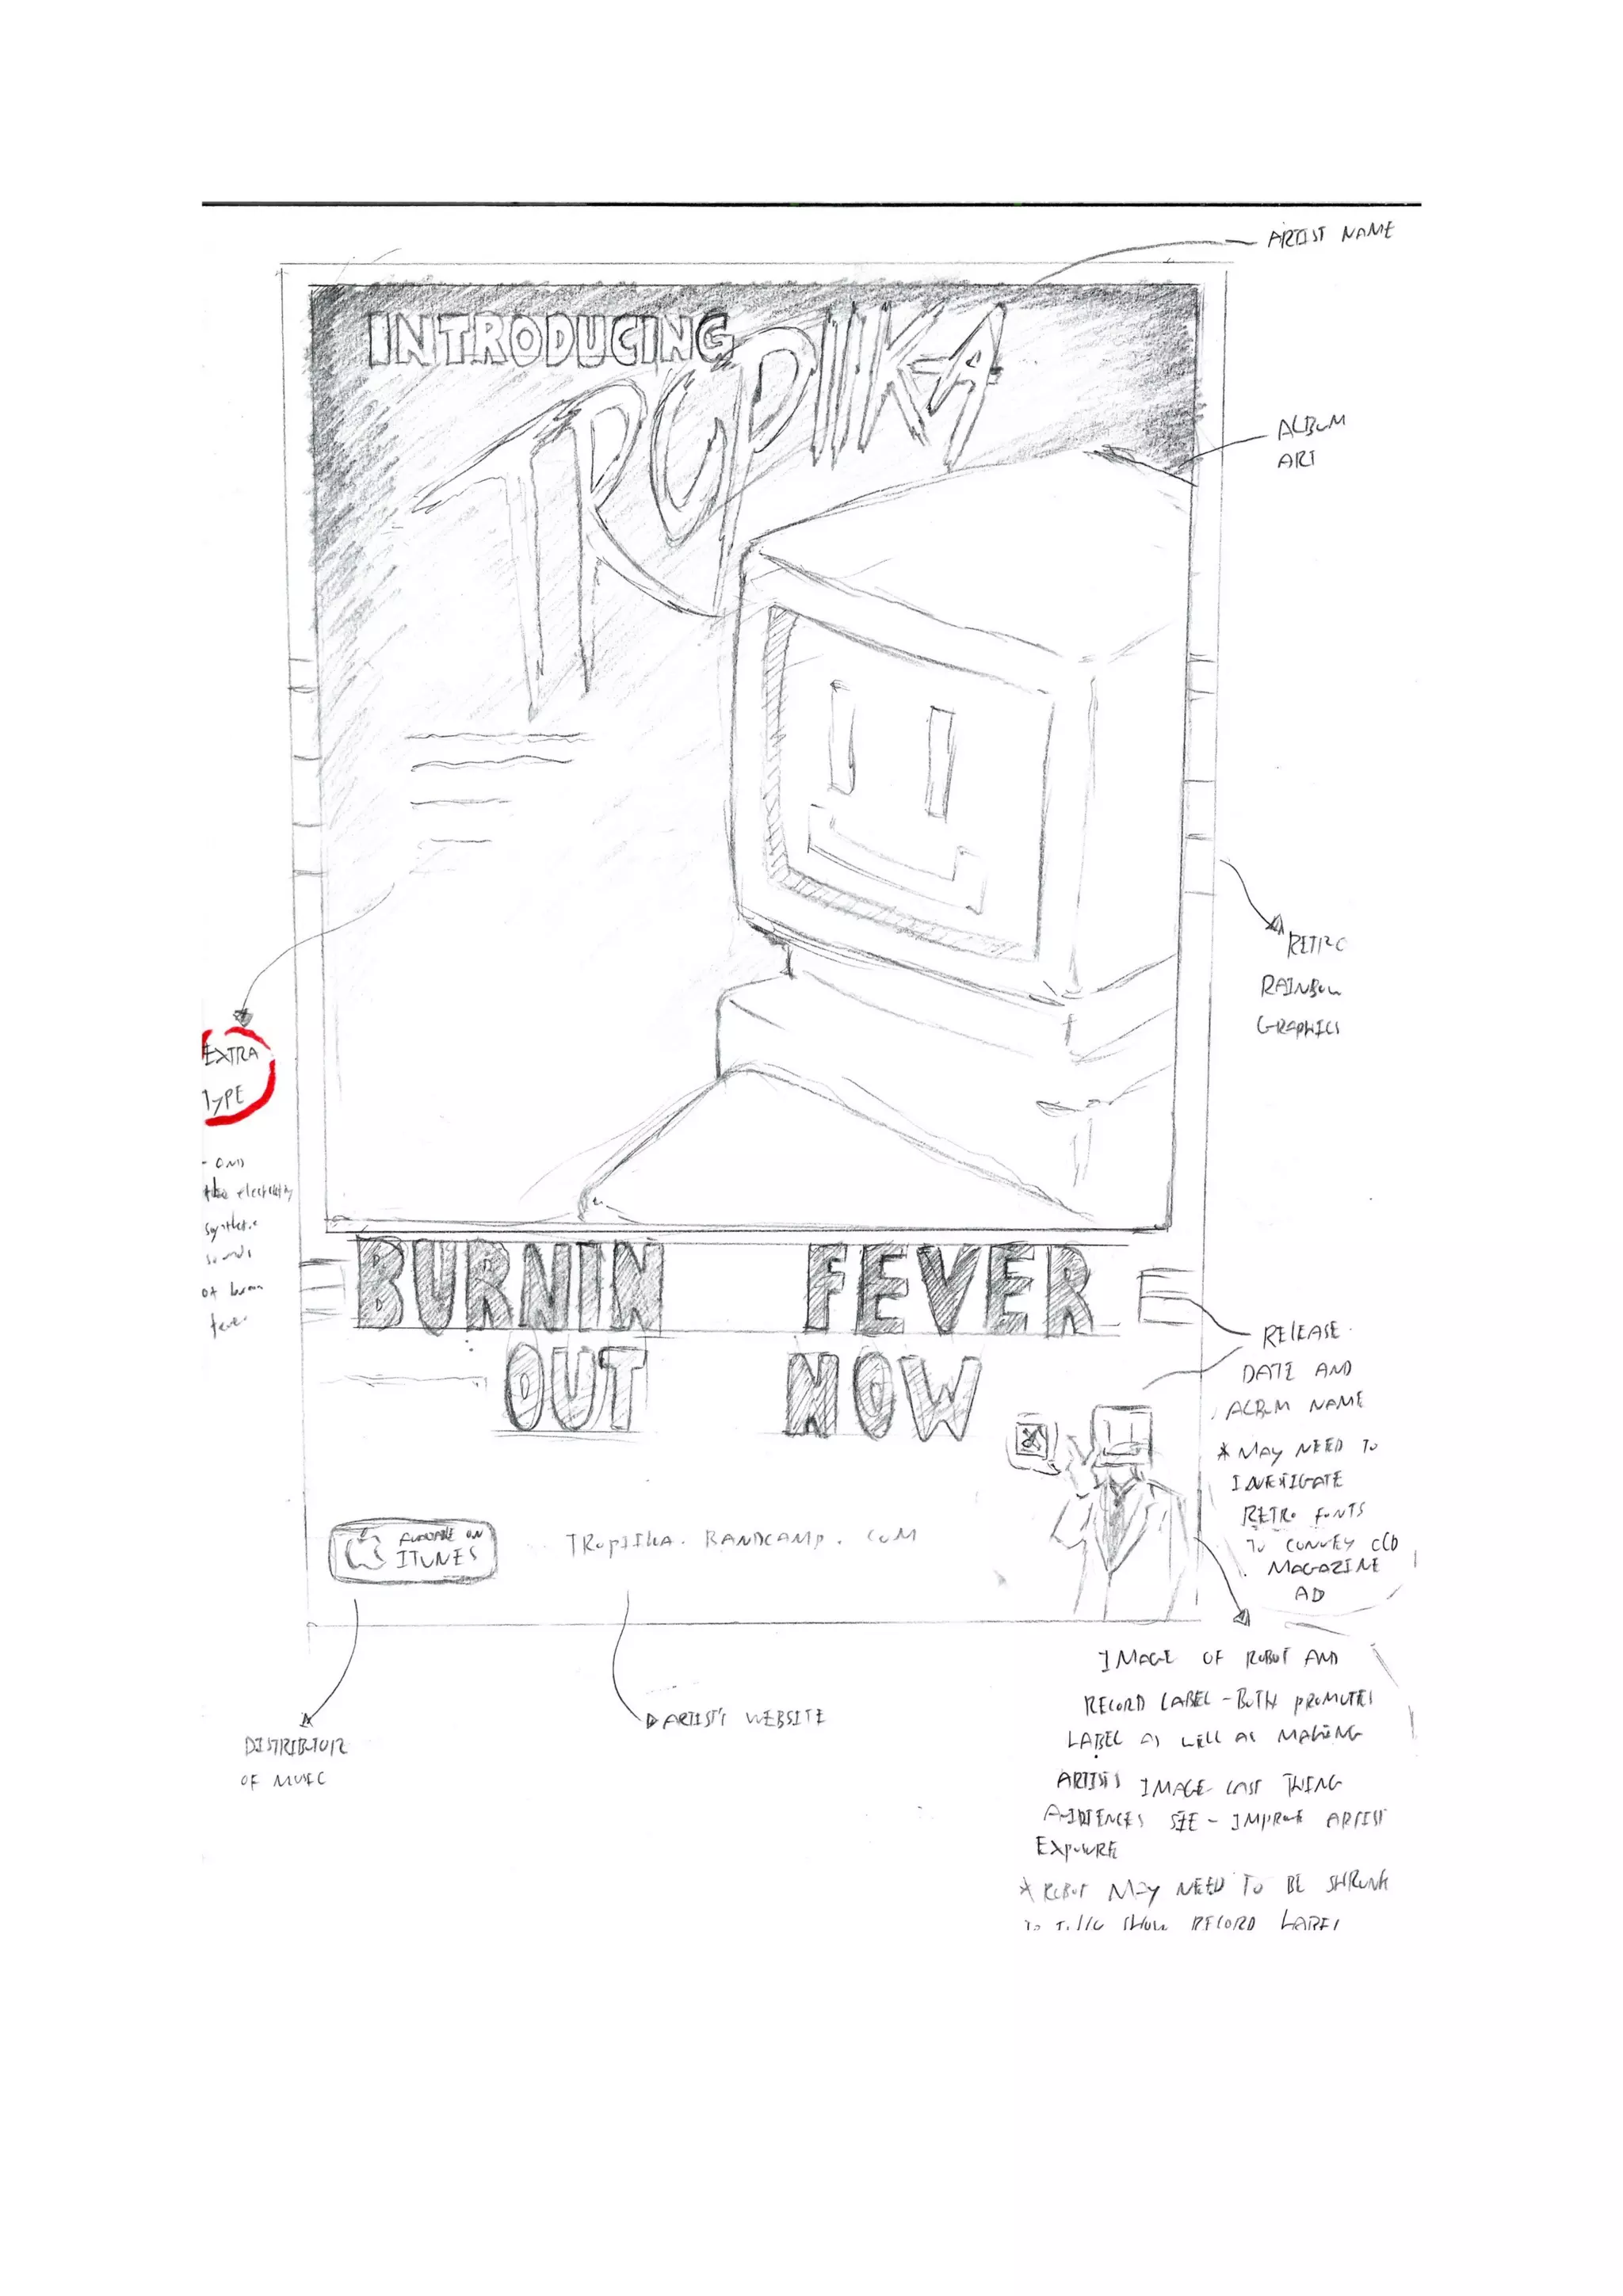 ARTIST NAME
INTRODUCING
TROPIIKA
ALBUM
ART
RETRO
RAINBOW
GRAPHICS
EXTRA
TYPE
the electricity
synthetic
sounds
of burnin
fever
BURNIN FEVER
OUT NOW
RELEASE
DATE AND
ALBUM NAME
* MAY NEED TO
INVESTIGATE
RETRO FONTS
TO CONVEY OLD
MAGAZINE
AD
AVAILABLE ON
ITUNES
TROPIIKA.BANDCAMP.COM
IMAGE OF ROBOT AND
RECORD LABEL - BOTH PROMOTES
LABEL AS WELL AS MAKING
ARTISTS IMAGE LAST THING
AUDIENCES SEE - IMPROVE ARTIST
EXPOSURE
* ROBOT MAY NEED TO BE SHRUNK
TO FULLY SHOW RECORD LABEL
ARTIST'S WEBSITE
DISTRIBUTOR
OF MUSIC